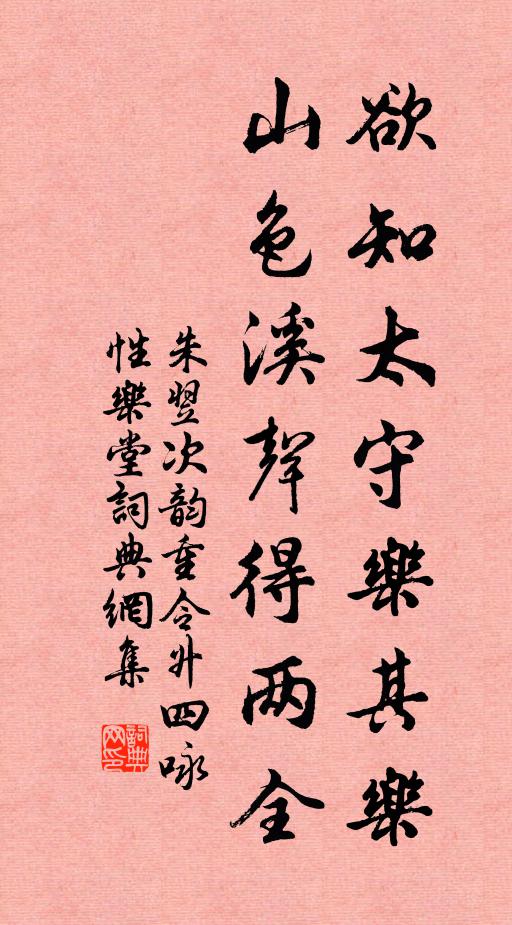 欲知太守樂其樂
山色溪聲得两全
朱翌次韵重令升四咏
性樂堂詞典網集
詞典网印